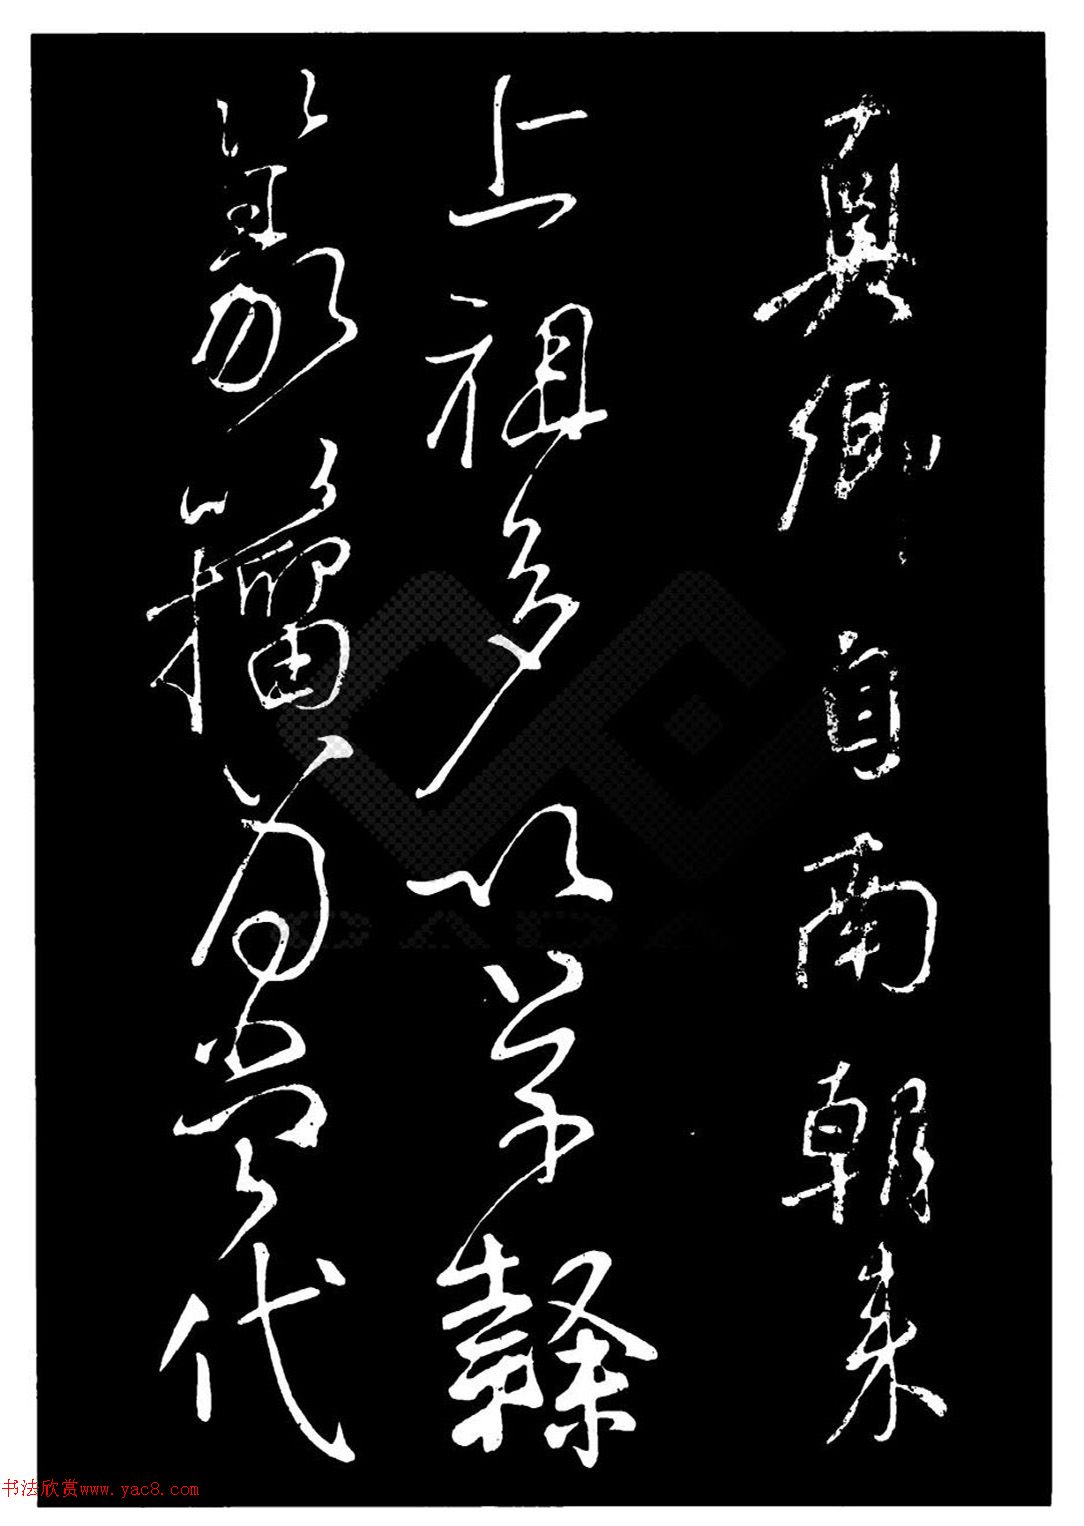 真卿自南朝来
上祖多以草隸
篆籀為當代
书法欣赏www.yac8.com